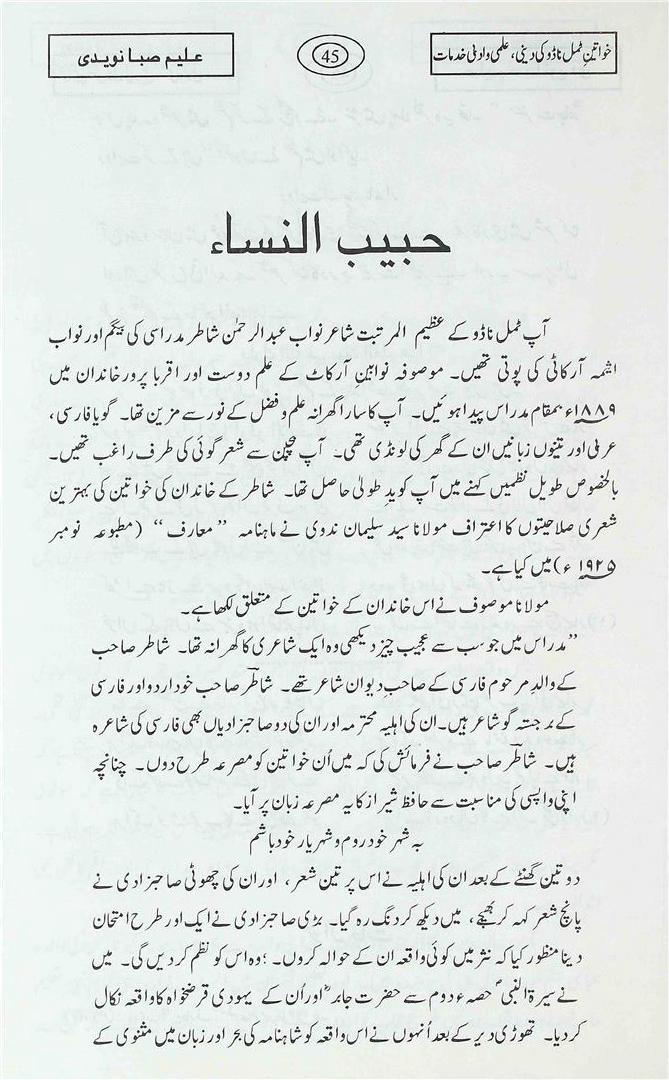 خواتینِ ٹمل ناڈو کی دینی، علمی و ادبی خدمات
45
علیم صبا نویدی
حبیب النساء
آپ ٹمل ناڈو کے عظیم المرتبت شاعر نواب عبدالرحمٰن شاطر مدراسی کی بیگم اور نواب
اشمہ آرکاٹی کی پوتی تھیں۔ موصوفہ نوابینِ آرکاٹ کے علم دوست اور اقربا پرور خاندان میں
۱۸۸۹ء بمقام مدراس پیدا ہوئیں۔ آپ کا سارا گھرانہ علم و فضل کے نور سے مزین تھا۔ گویا فارسی،
عربی اور تینوں زبانیں ان کے گھر کی لونڈی تھی۔ آپ بچپن سے شعر گوئی کی طرف راغب تھیں۔
بالخصوص طویل نظمیں کہنے میں آپ کو یدِ طولیٰ حاصل تھا۔ شاطر کے خاندان کی خواتین کی بہترین
شعری صلاحیتوں کا اعتراف مولانا سید سلیمان ندوی نے ماہنامہ ’’معارف‘‘ (مطبوعہ نومبر
۱۹۲۵ء) میں کیا ہے۔
مولانا موصوف نے اس خاندان کے خواتین کے متعلق لکھا ہے۔
’’مدراس میں جو سب سے عجیب چیز دیکھی وہ ایک شاعری کا گھرانہ تھا۔ شاطر صاحب
کے والدِ مرحوم فارسی کے صاحبِ دیوان شاعر تھے۔ شاطرؔ صاحب خود اردو اور فارسی
کے برجستہ گو شاعر ہیں۔ ان کی اہلیہ محترمہ اور ان کی دو صاحبزادیاں بھی فارسی کی شاعرہ
ہیں۔ شاطرؔ صاحب نے فرمائش کی کہ میں اُن خواتین کو مصرعہ طرح دوں۔ چنانچہ
اپنی واپسی کی مناسبت سے حافظ شیراز کا یہ مصرعہ زبان پر آیا۔
بہ شہر خود روم و شہریار خود باشم
دو تین گھنٹے کے بعد ان کی اہلیہ نے اس پر تین شعر، اور ان کی چھوٹی صاحبزادی نے
پانچ شعر کہہ کر بھیجے، میں دیکھ کر دنگ رہ گیا۔ بڑی صاحبزادی نے ایک اور طرح امتحان
دینا منظور کیا کہ نثر میں کوئی واقعہ ان کے حوالہ کروں۔ وہ اس کو نظم کر دیں گی۔ میں
نے سیرۃ النبیؐ حصہ دوم سے حضرت جابرؓ اور اُن کے یہودی قرضخواہ کا واقعہ نکال
کر دیا۔ تھوڑی دیر کے بعد اُنہوں نے اس واقعہ کو شاہنامہ کی بحر اور زبان میں مثنوی کے